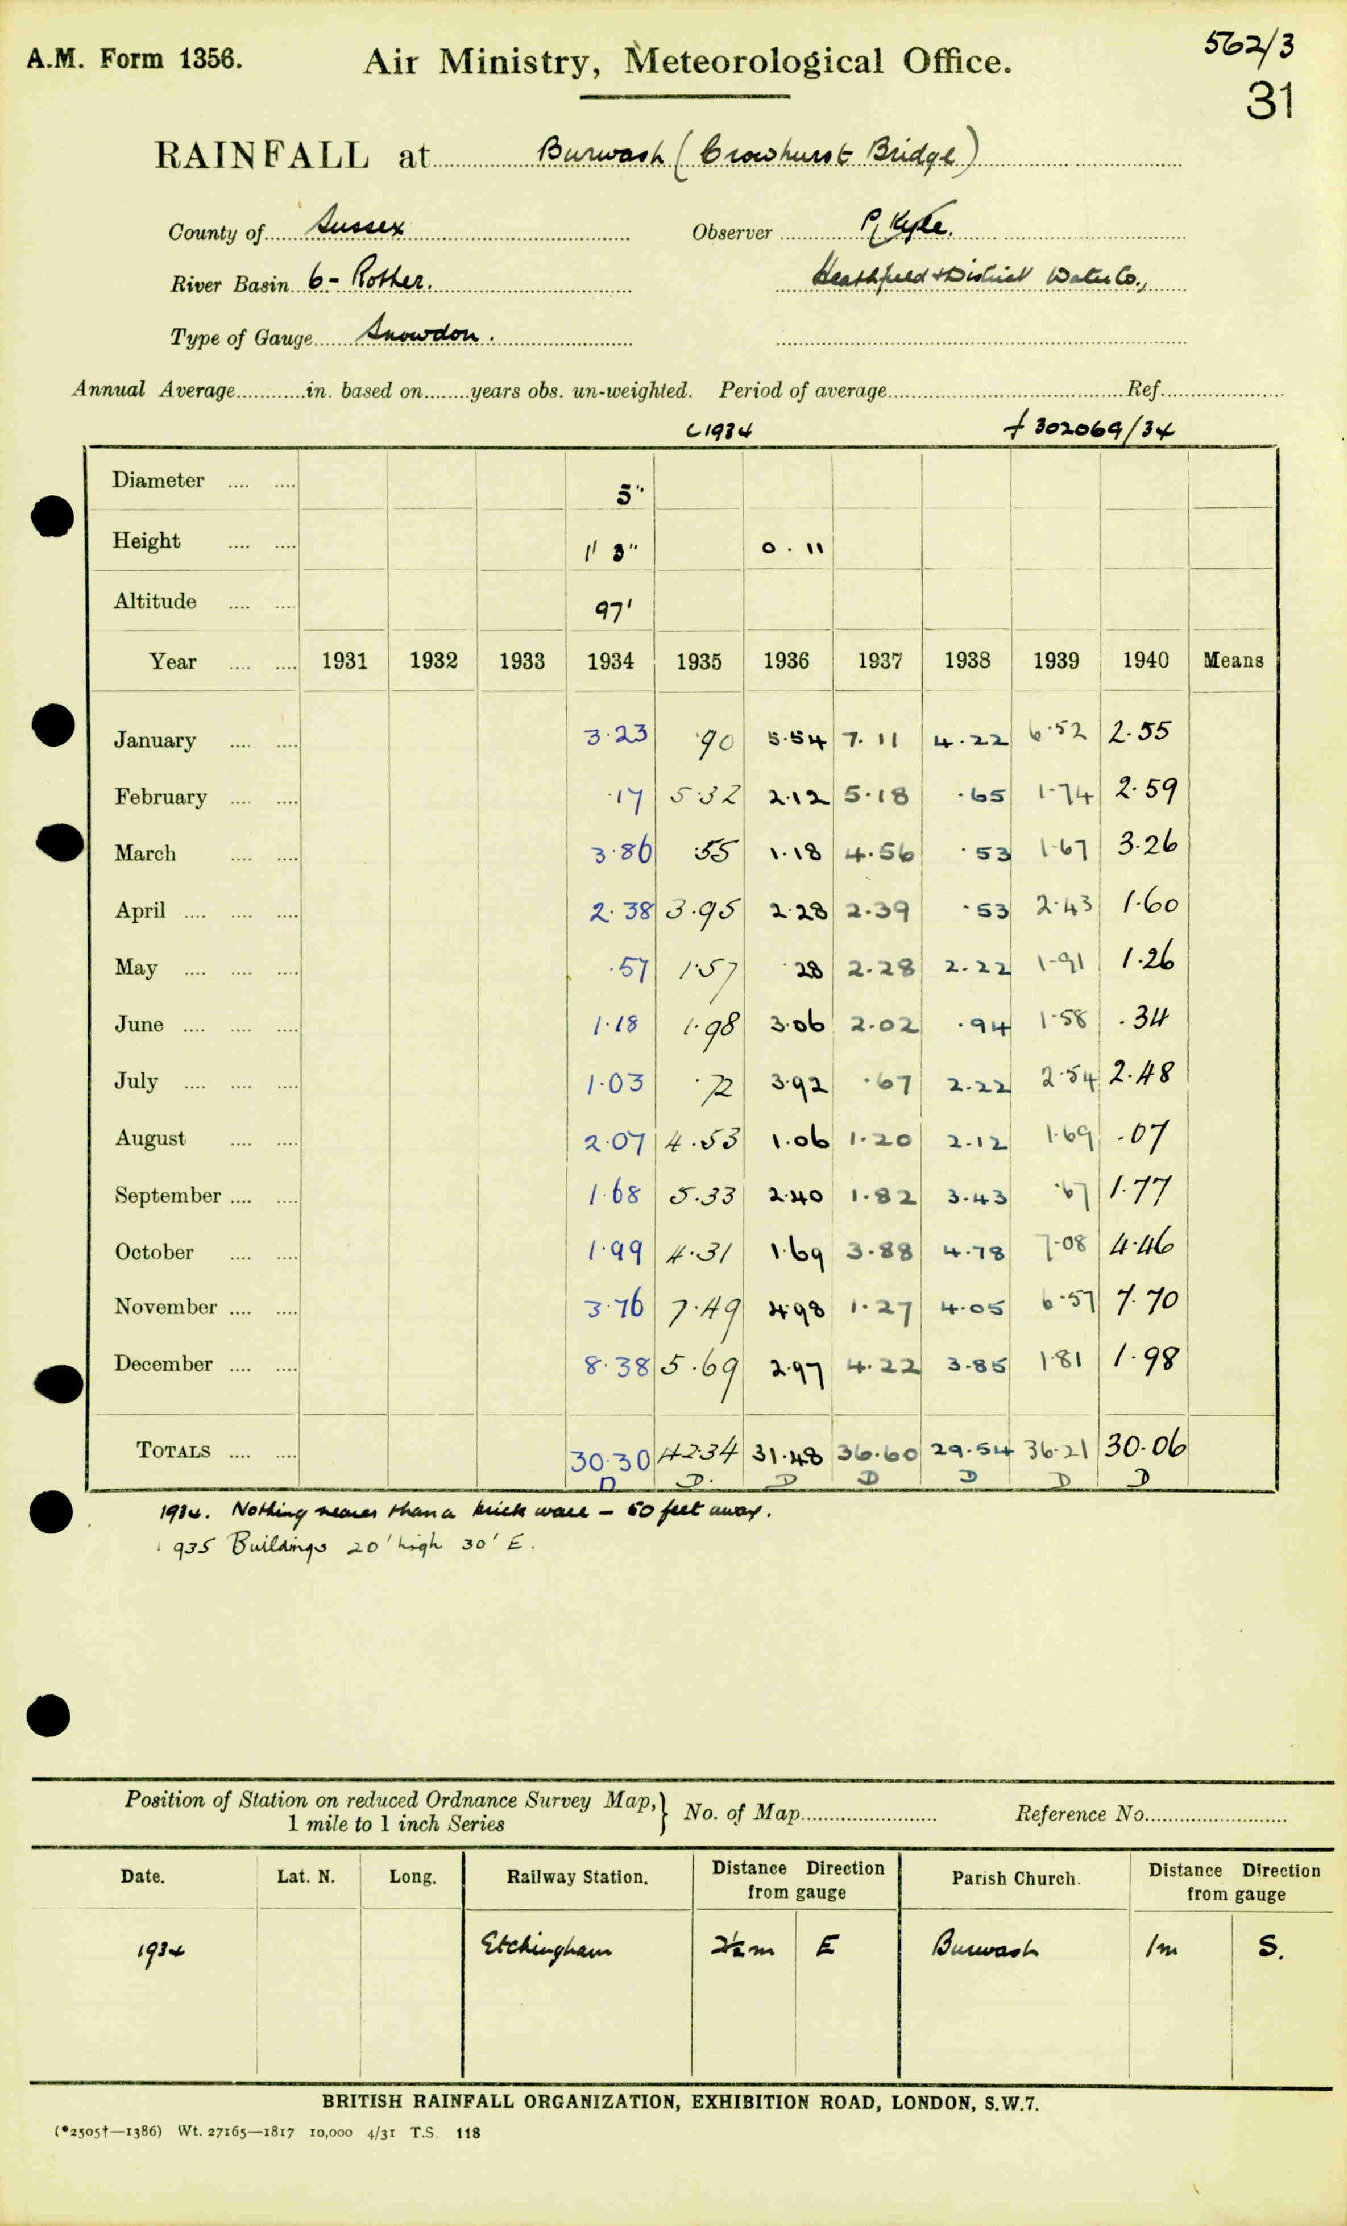 A.M. Form 1356.
Air Ministry, Meteorological Office.
562/3
31
RAINFALL at Burwash (Crowhurst Bridge)
County of Sussex Observer P. Kyle.
River Basin 6 - Rother. Heathfield + District Water Co.,
Type of Gauge Snowdon.
Annual Average in. based on years obs. un-weighted. Period of average Ref.
1934 302069/34
Diameter 5"
Height 1' 3" 0.11
Altitude 97'
Year 1931 1932 1933 1934 1935 1936 1937 1938 1939 1940 Means
January 3.23 .90 5.54 7.11 4.22 6.52 2.55
February .17 5.32 2.12 5.18 .65 1.74 2.59
March 3.86 .55 1.18 4.56 .53 1.67 3.26
April 2.38 3.95 2.28 2.39 .53 2.43 1.60
May .57 1.57 .28 2.28 2.22 1.91 1.26
June 1.18 1.98 3.06 2.02 .94 1.58 .34
July 1.03 .72 3.92 .67 2.22 2.54 2.48
August 2.07 4.53 1.06 1.20 2.12 1.69 .07
September 1.68 5.33 2.40 1.82 3.43 .67 1.77
October 1.99 4.31 1.69 3.88 4.78 7.08 4.46
November 3.76 7.49 4.98 1.27 4.05 6.57 7.70
December 8.38 5.69 2.97 4.22 3.85 1.81 1.98
TOTALS 30.30 42.34 31.48 36.60 29.54 36.21 30.06
D D. D D D D D
1934. Nothing nearer than a brick wall - 50 feet away.
1935 Buildings 20' high 30' E.
Position of Station on reduced Ordnance Survey Map, } No. of Map Reference No.
1 mile to 1 inch Series
Date. Lat. N. Long. Railway Station. Distance Direction from gauge Parish Church. Distance Direction from gauge
1934 Etchingham 2½m E Burwash 1m S.
BRITISH RAINFALL ORGANIZATION, EXHIBITION ROAD, LONDON, S.W.7.
(*2505†—1386) Wt. 27165—1817 10,000 4/31 T.S. 118